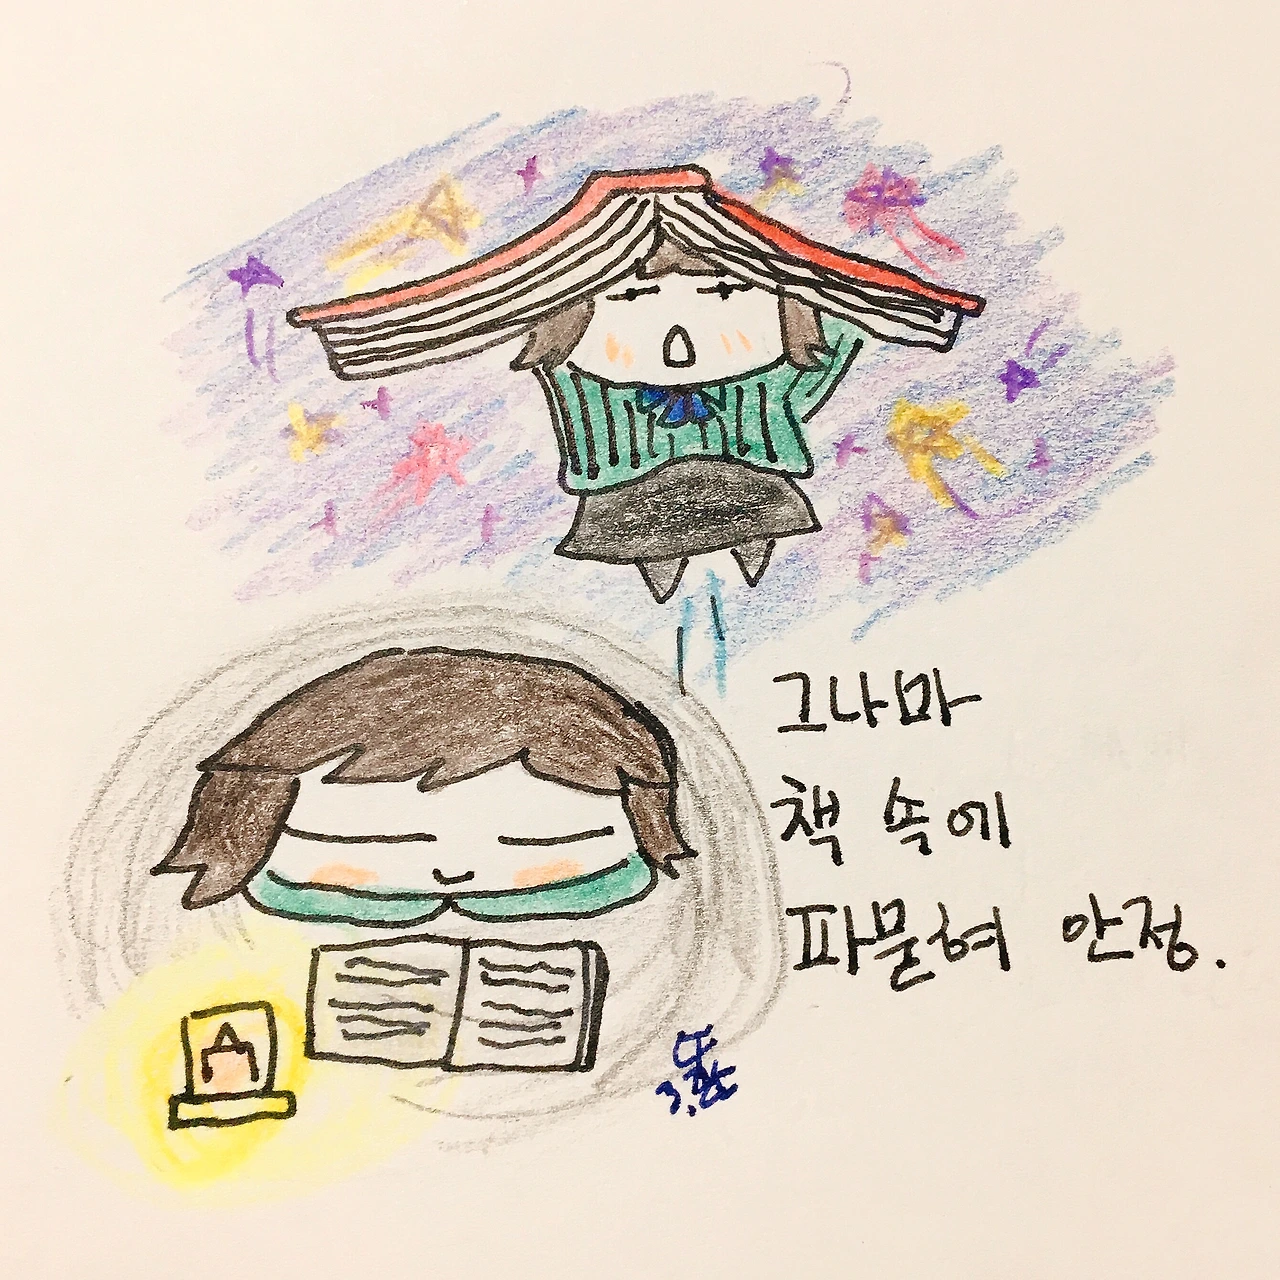 그나마
책 속에
파묻혀 안정.